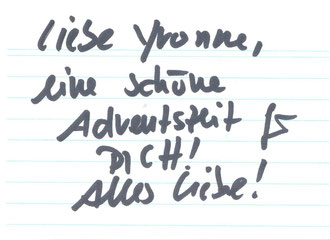 Liebe Yvonne,
eine schöne
Adventszeit für
DICH!
Alles Liebe!